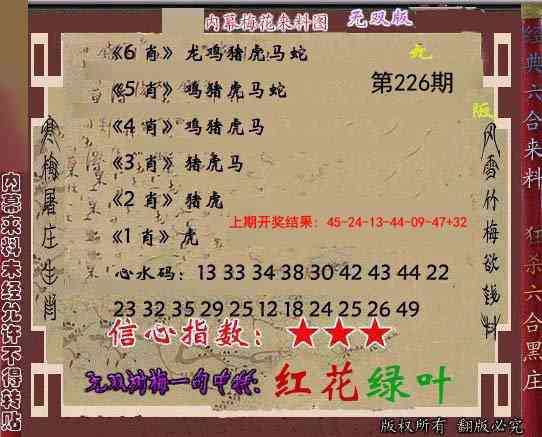 内幕梅花来料图 无双版
《6 肖》 龙鸡猪虎马蛇
《5 肖》 鸡猪虎马蛇
《4 肖》 鸡猪虎马
《3 肖》 猪虎马
《2 肖》 猪虎
《1 肖》 虎
第226期
上期开奖结果：45-24-13-44-09-47+32
心水码：13 33 34 38 30 42 43 44 22
23 32 35 29 25 12 18 24 25 26 49
信心指数：★★★
无双鸿梅一句中特：红花绿叶
版权所有 翻版必究
内幕来料未经允许不得转贴
寒梅屠庄生肖
风雪竹梅欲钱料
经典六合来料 狂杀六合黑庄